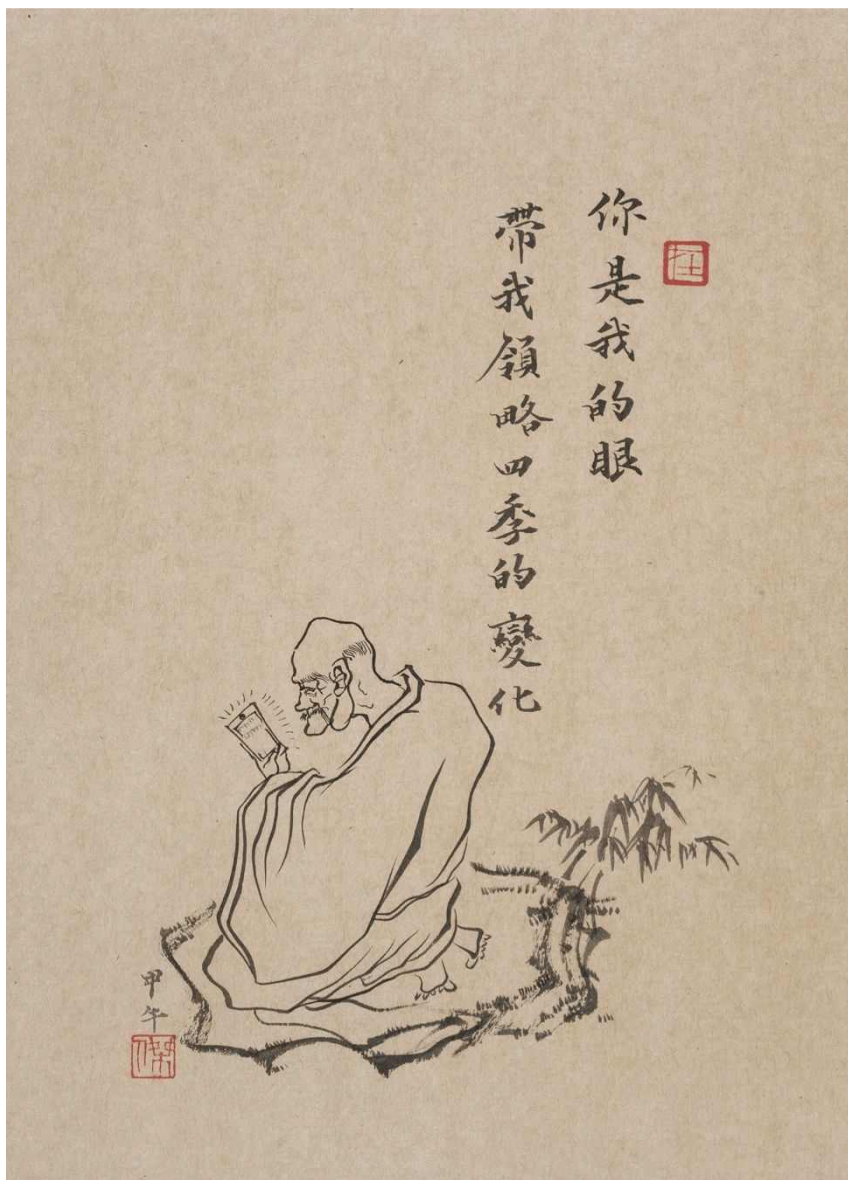 你是我的眼
帶我領略四季的變化
甲午
傑